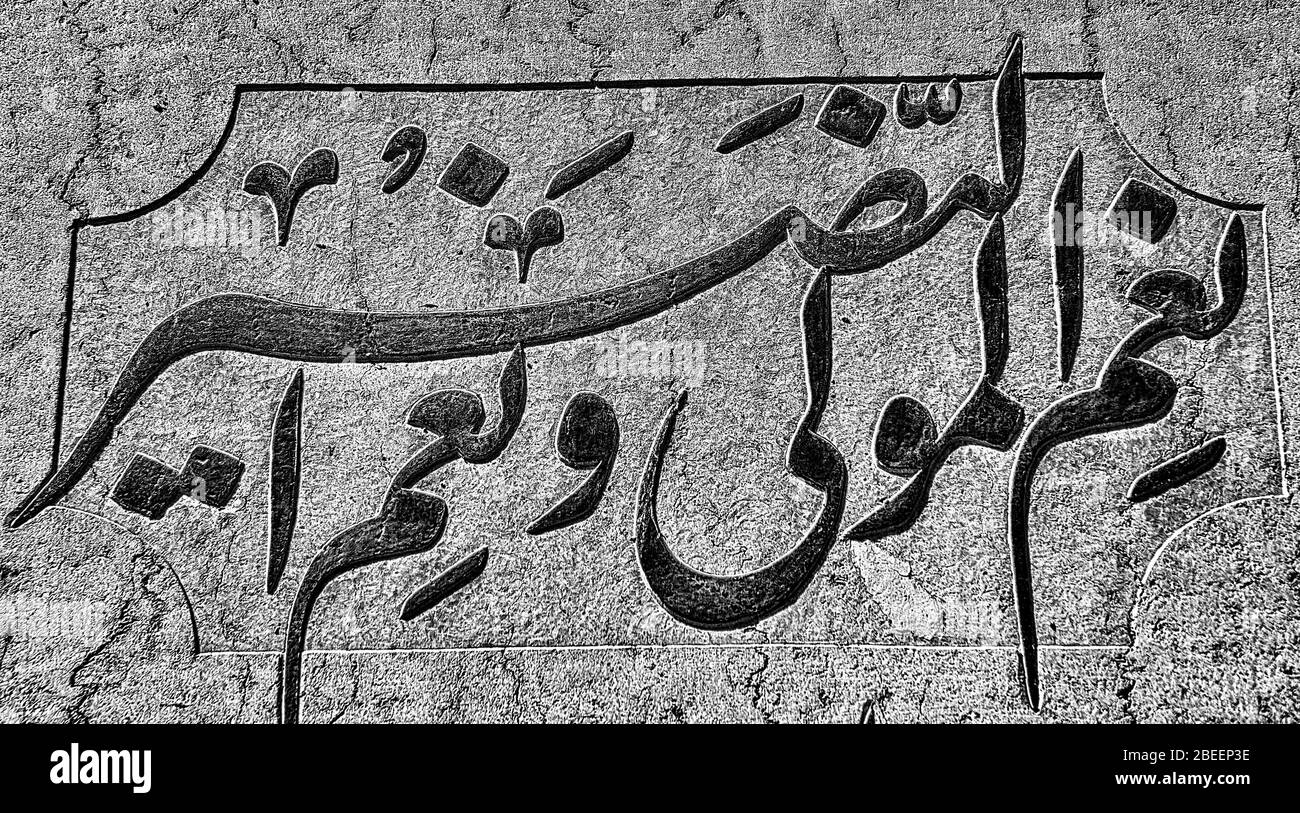 نِعم المولى ونِعم النَّصَير
alamy
Image ID: 2BEEP3E
www.alamy.com